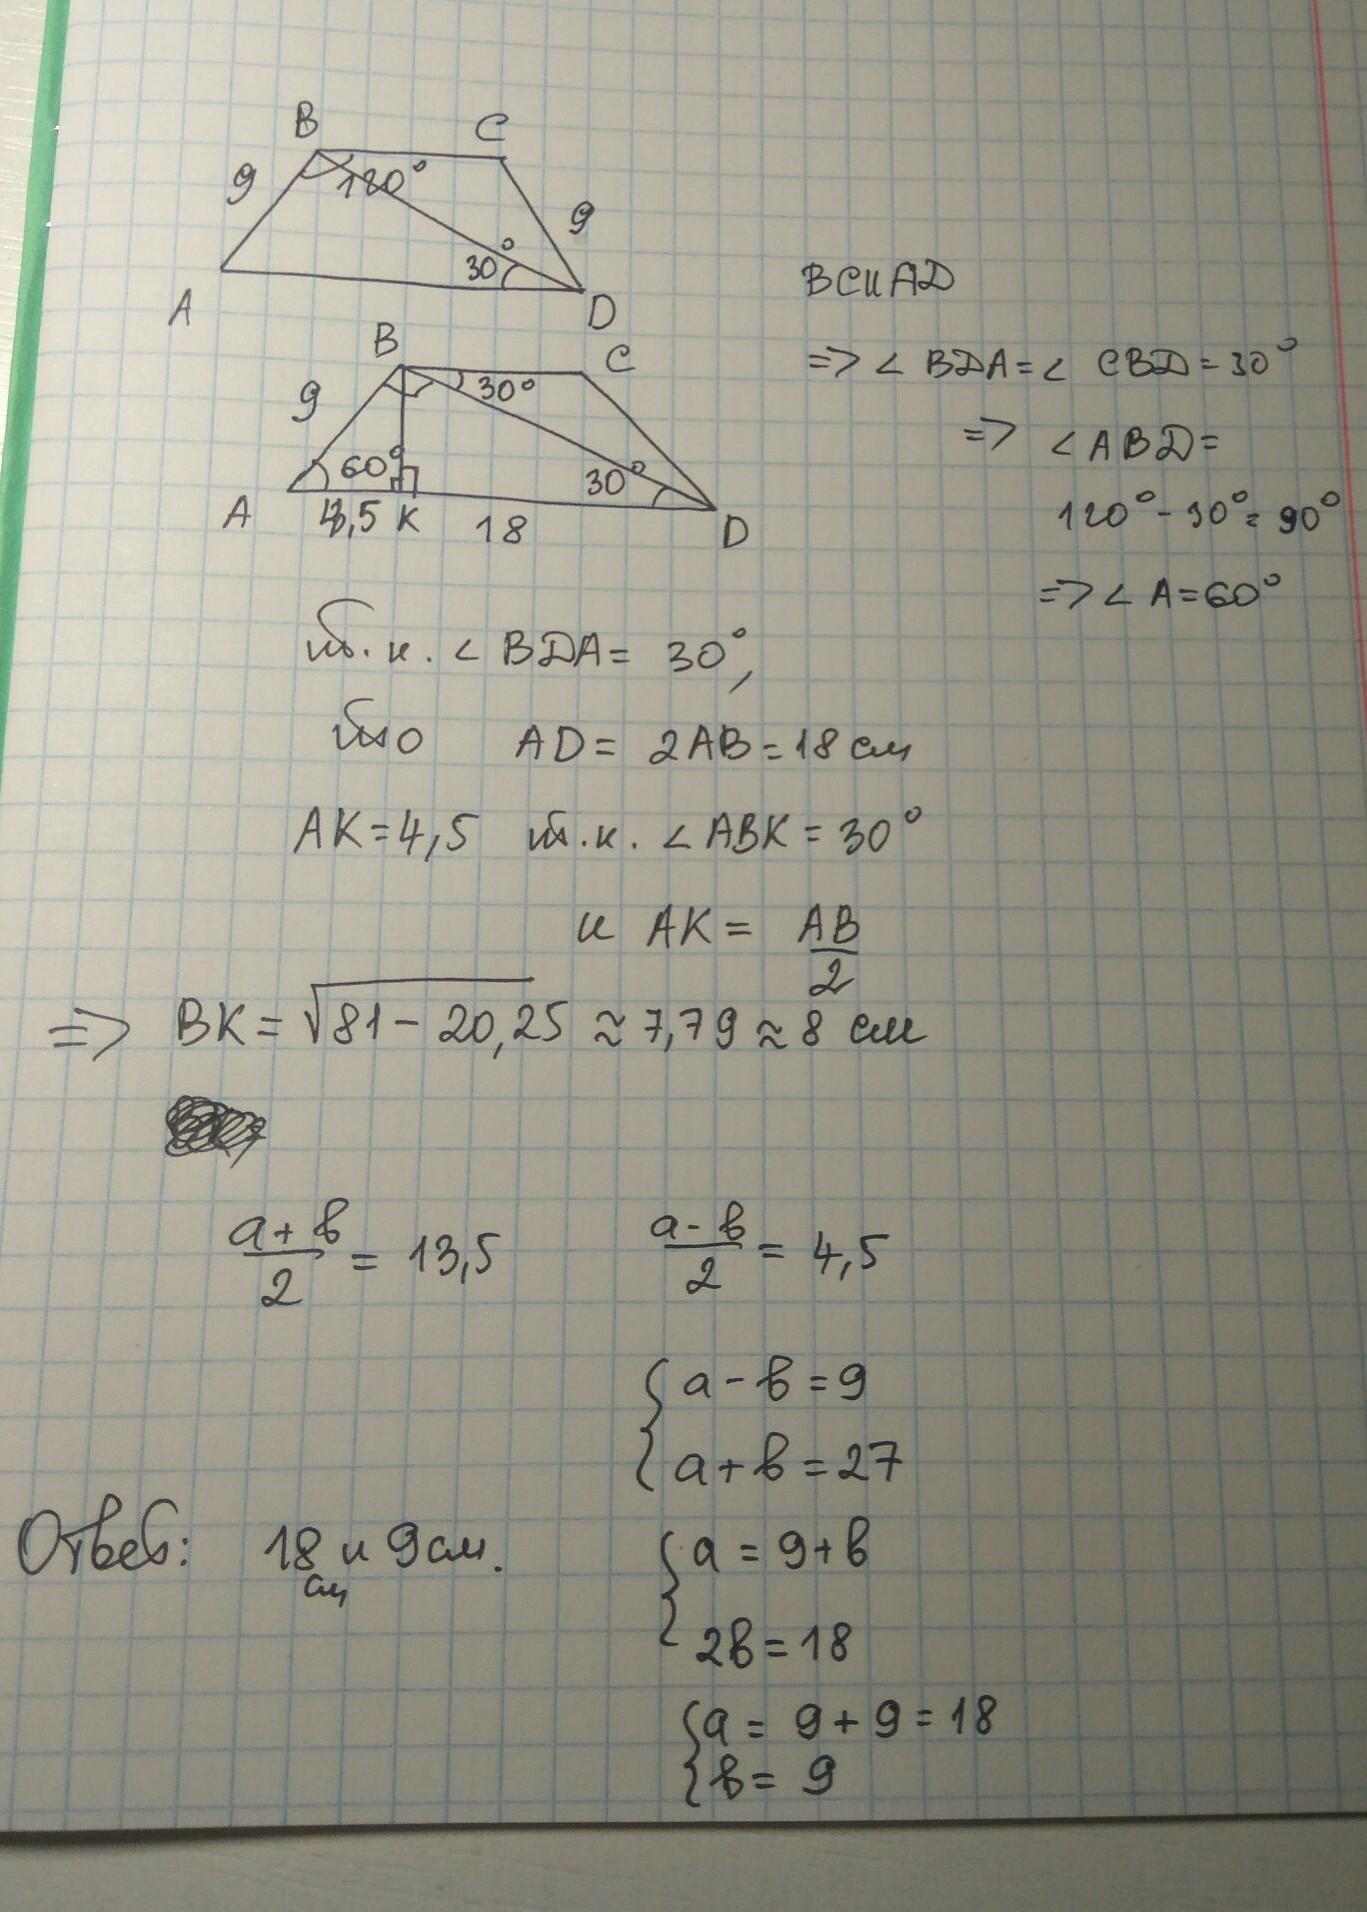 B C
9 120° 9
30°
A D
B C
9 30°
60° 30°
A 4,5 K 18 D
BC ∥ AD
=> ∠ BDA = ∠ CBD = 30°
=> ∠ ABD =
120° - 30° = 90°
=> ∠ A = 60°
т.к. ∠ BDA = 30°,
то AD = 2AB = 18 см
AK = 4,5 т.к. ∠ ABK = 30°
и AK = AB/2
=> BK = √81 - 20,25 ≈ 7,79 ≈ 8 см
a + b / 2 = 13,5 a - b / 2 = 4,5
{ a - b = 9
a + b = 27
{ a = 9 + b
2b = 18
{ a = 9 + 9 = 18
b = 9
Ответ: 18 см и 9 см.